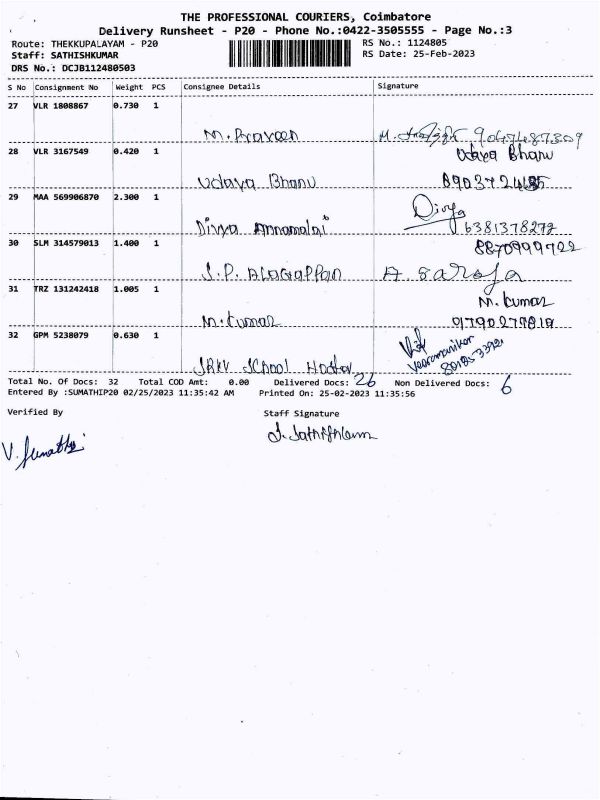 THE PROFESSIONAL COURIERS, Coimbatore
Delivery Runsheet - P20 - Phone No.:0422-3505555 - Page No.:3
Route: THEKKUPALAYAM - P20 RS No.: 1124805
Staff: SATHISHKUMAR RS Date: 25-Feb-2023
DRS No.: DCJB112480503
S No Consignment No Weight PCS Consignee Details Signature
27 VLR 1808867 0.730 1
M. Praveen M. 9047487309
28 VLR 3167549 0.420 1 Udaya Bhanu
Udaya Bhanu
29 MAA 569906870 2.300 1 Divya
Divya Annamalai 6381378272
30 SLM 314579013 1.400 1 8870999722
S.P. Alagappan A Saroja
31 TRZ 131242418 1.005 1 M. Kumar
M. Kumar 9790279819
32 GPM 5238079 0.630 1
School
Total No. Of Docs: 32 Total COD Amt: 0.00 Delivered Docs: 26 Non Delivered Docs: 6
Entered By :SUMATHIP20 02/25/2023 11:35:42 AM Printed On: 25-02-2023 11:35:56
Verified By Staff Signature
V. Sumathi S. Sathishkumar